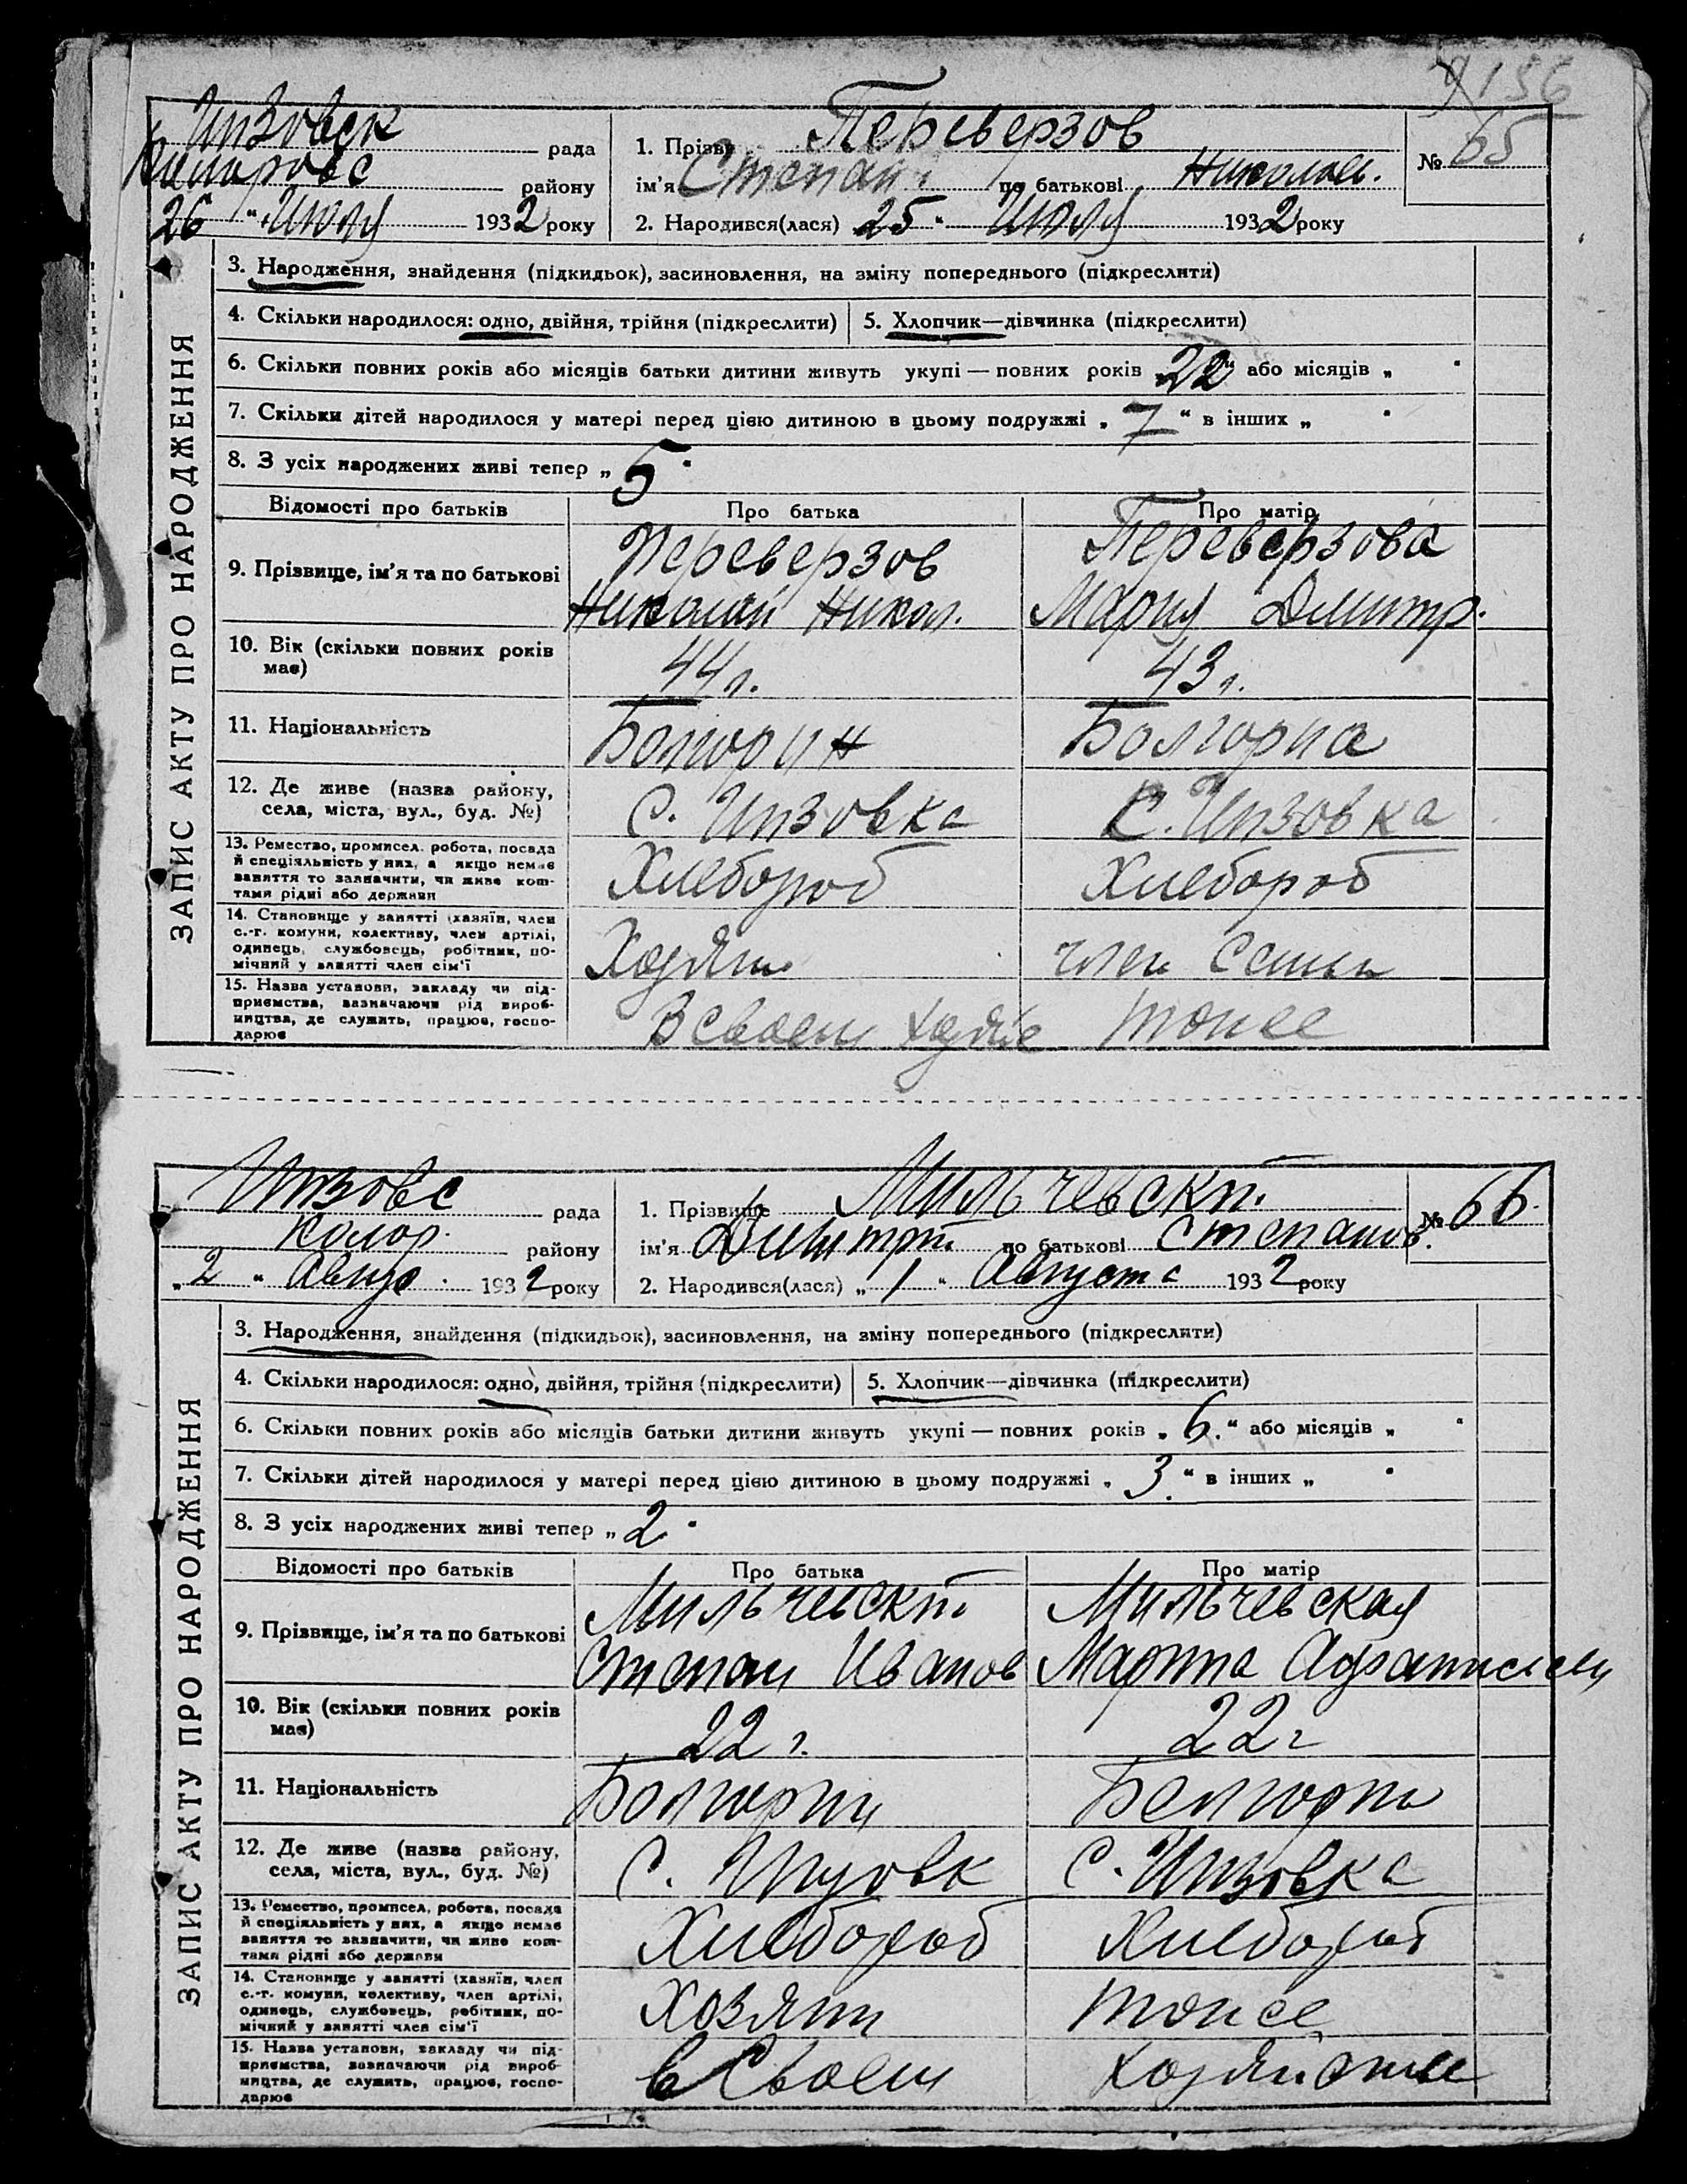 156
Инзовск рада
района району
26 " Июля 1932 року
1. Прізвище Переверзов
ім'я Степан по батькові Николаев.
№ 65
2. Народився(лася) 25 " Июля 1932 року
ЗАПИС АКТУ ПРО НАРОДЖЕННЯ
3. Народження, знайдення (підкидьок), засиновлення, на зміну попереднього (підкреслити)
4. Скільки народилося: одно, двійня, трійня (підкреслити) 5. Хлопчик—дівчинка (підкреслити)
6. Скільки повних років або місяців батьки дитини живуть укупі — повних років 22 " або місяців „ "
7. Скільки дітей народилося у матері перед цією дитиною в цьому подружжі „ 7 " в інших „ "
8. З усіх народжених живі тепер „ 5 "
Відомості про батьків Про батька Про матір
9. Прізвище, ім'я та по батькові
Переверзов Переверзова
Николай Никол. Мария Дмитр.
10. Вік (скільки повних років має) 44 г. 43 г.
11. Національність Болгорин Болгорка
12. Де живе (назва району, села, міста, вул., буд. №) С. Инзовка С. Инзовка
13. Ремество, промисел, робота, посада
й спеціяльність у них, а якщо немає
заняття то зазначити, чи живе кош-
тами рідні або держави
Хлебороб Хлебороб
14. Становище у занятті (хазяїн, член
с.-г. комуни, колективу, член артілі,
одинець, службовець, робітник, по-
мічний у занятті член сім'ї
Хозяин член Семьи
15. Назва установи, закладу чи під-
приємства, зазначаючи рід вироб-
ництва, де служить, працює, госпо-
дарює
В своем тоже
Инзовс рада
Колор. району
„ 2 " Авгус. 1932 року
1. Прізвище Мильчевский
ім'я Димитрий по батькові Степанов.
№ 66.
2. Народився(лася) „ 1 " Августа 1932 року
ЗАПИС АКТУ ПРО НАРОДЖЕННЯ
3. Народження, знайдення (підкидьок), засиновлення, на зміну попереднього (підкреслити)
4. Скільки народилося: одно, двійня, трійня (підкреслити) 5. Хлопчик—дівчинка (підкреслити)
6. Скільки повних років або місяців батьки дитини живуть укупі — повних років „ 6. " або місяців „ "
7. Скільки дітей народилося у матері перед цією дитиною в цьому подружжі „ 3. " в інших „ "
8. З усіх народжених живі тепер „ 2 "
Відомості про батьків Про батька Про матір
9. Прізвище, ім'я та по батькові
Мильчевский Мильчевская
Степан Иванов
10. Вік (скільки повних років має) 22 г. 22 г
11. Національність Болгорин Болгорка
12. Де живе (назва району, села, міста, вул., буд. №) С. Инзовк С. Инзовка
13. Ремество, промисел, робота, посада
й спеціяльність у них, а якщо немає
заняття то зазначити, чи живе кош-
тами рідні або держави
Хлебороб Хлебороб
14. Становище у занятті (хазяїн, член
с.-г. комуни, колективу, член артілі,
одинець, службовець, робітник, по-
мічний у занятті член сім'ї
Хозяин тоже
15. Назва установи, закладу чи під-
приємства, зазначаючи рід вироб-
ництва, де служить, працює, госпо-
дарює
в Своем хозяйстве